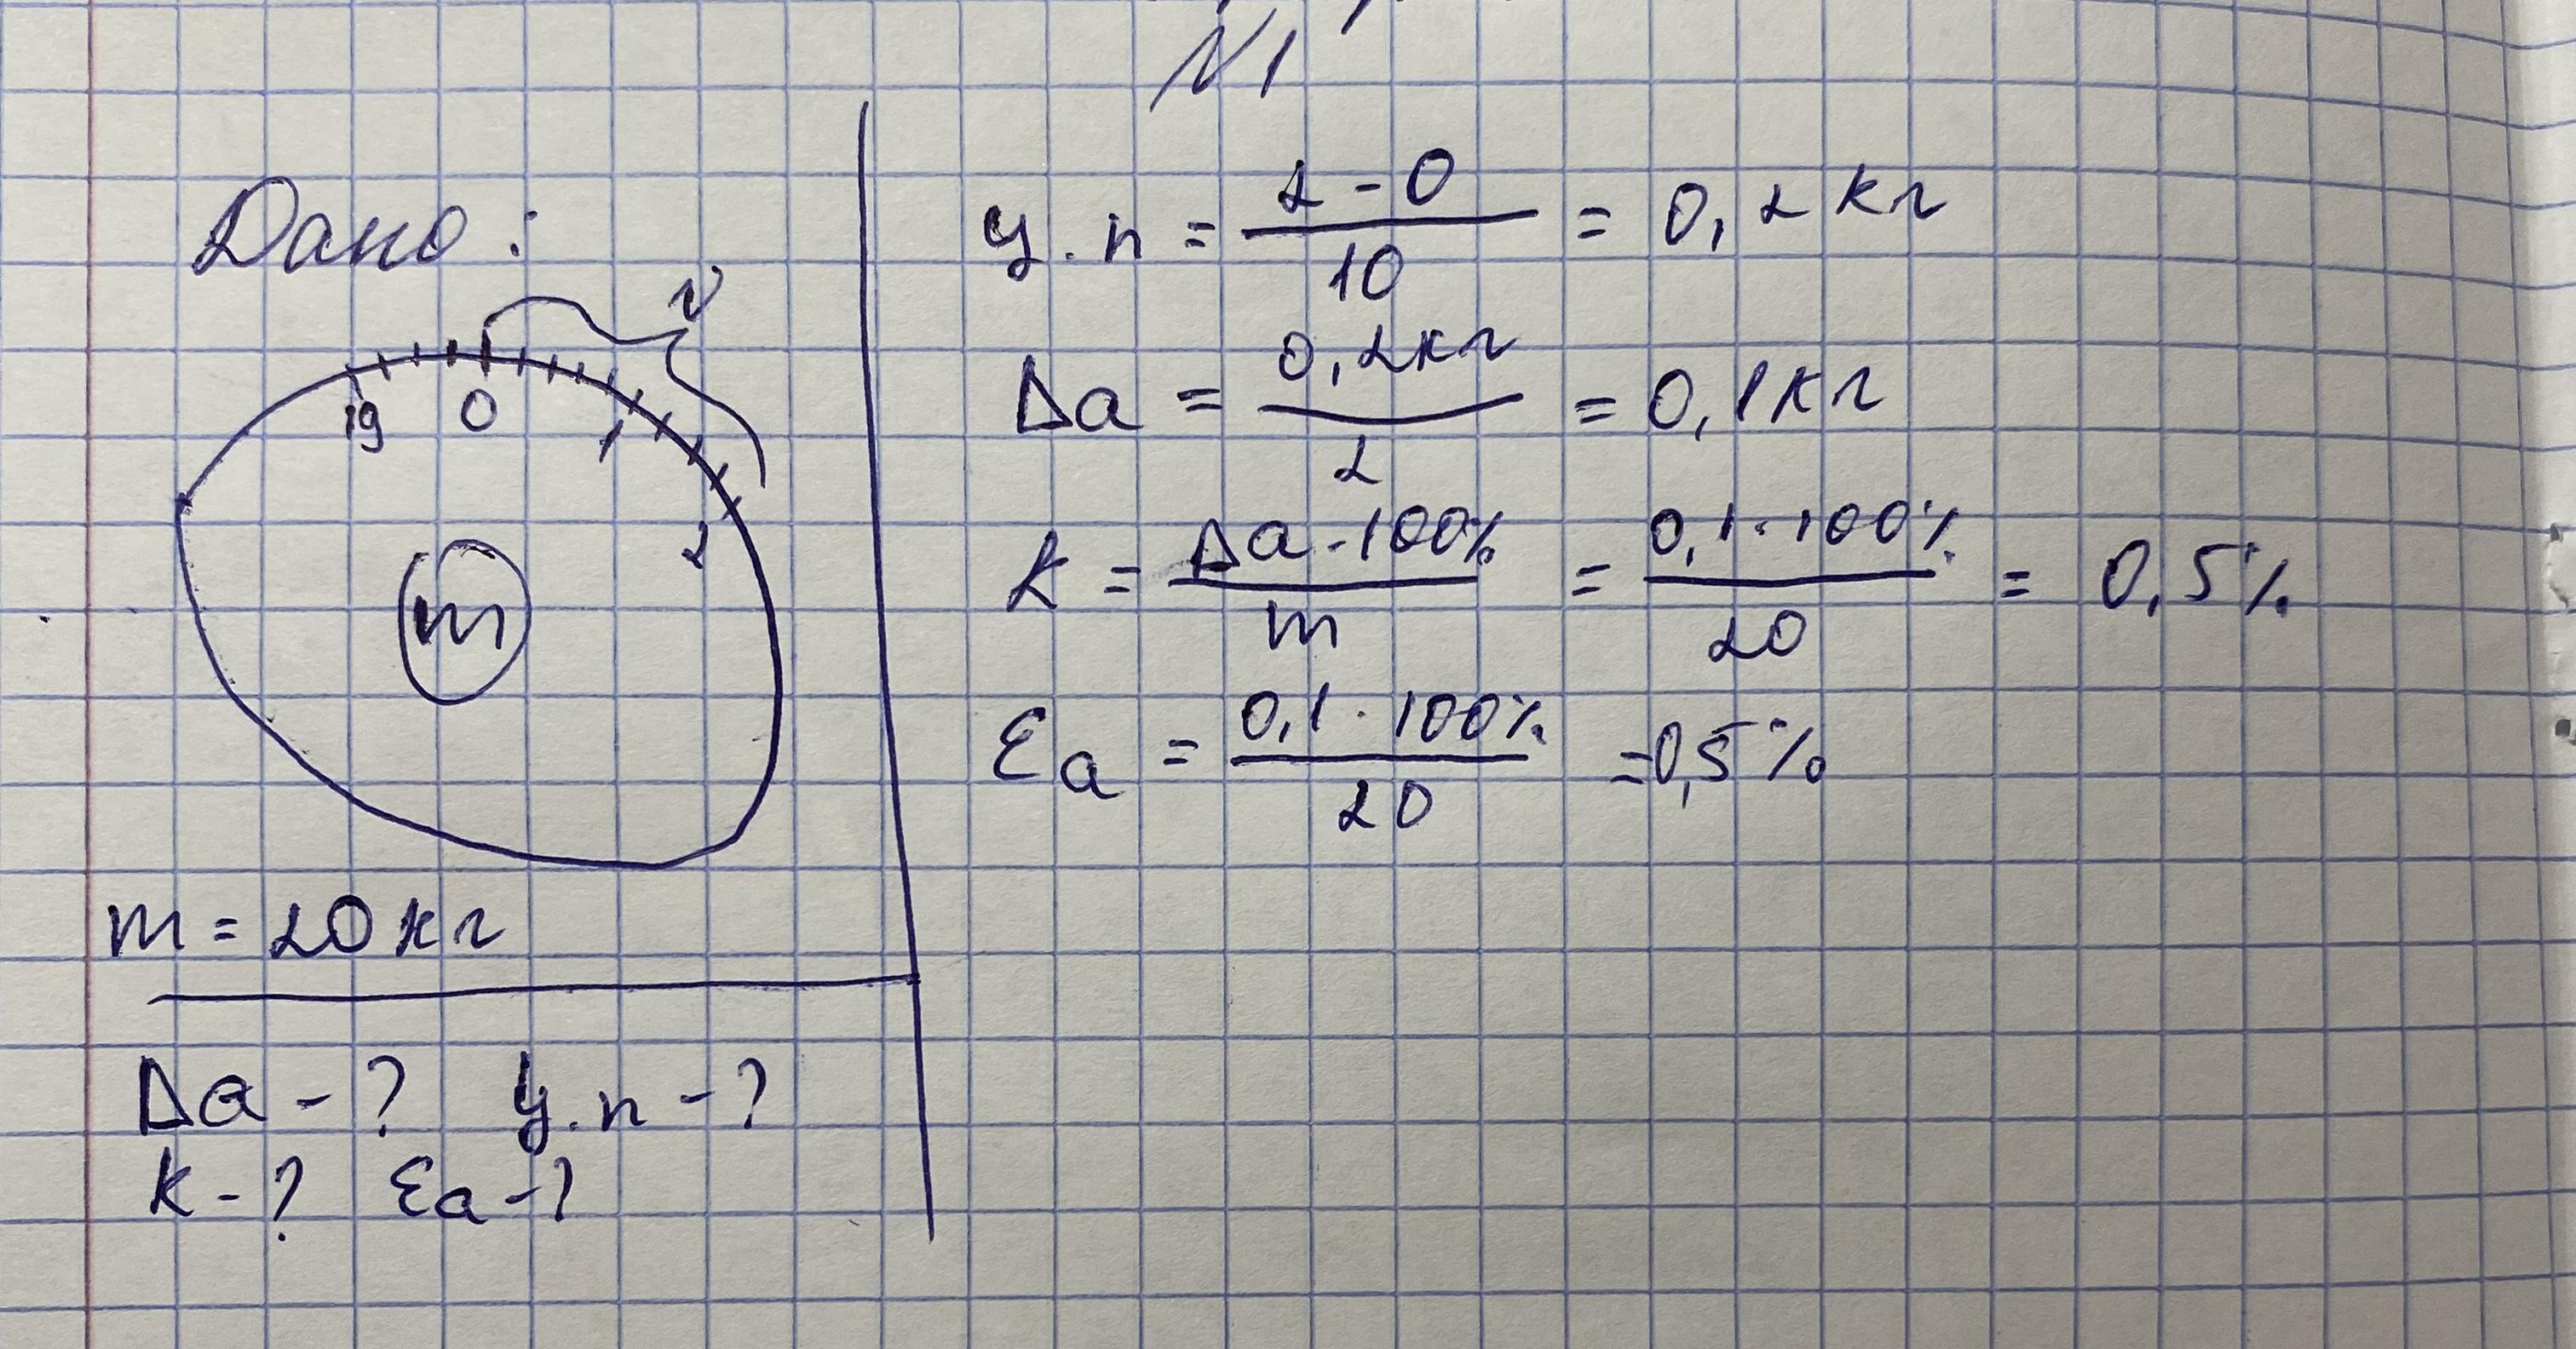 N1
Дано:
N
19 0 1 2
m
m = 20 кг
Δa - ? y.n - ?
k - ? Ɛa - ?
y.n = (2 - 0)/10 = 0,2 кг
Δa = 0,2кг/2 = 0,1кг
k = Δa · 100%/m = 0,1 · 100%/20 = 0,5%
Ɛa = 0,1 · 100%/20 = 0,5%